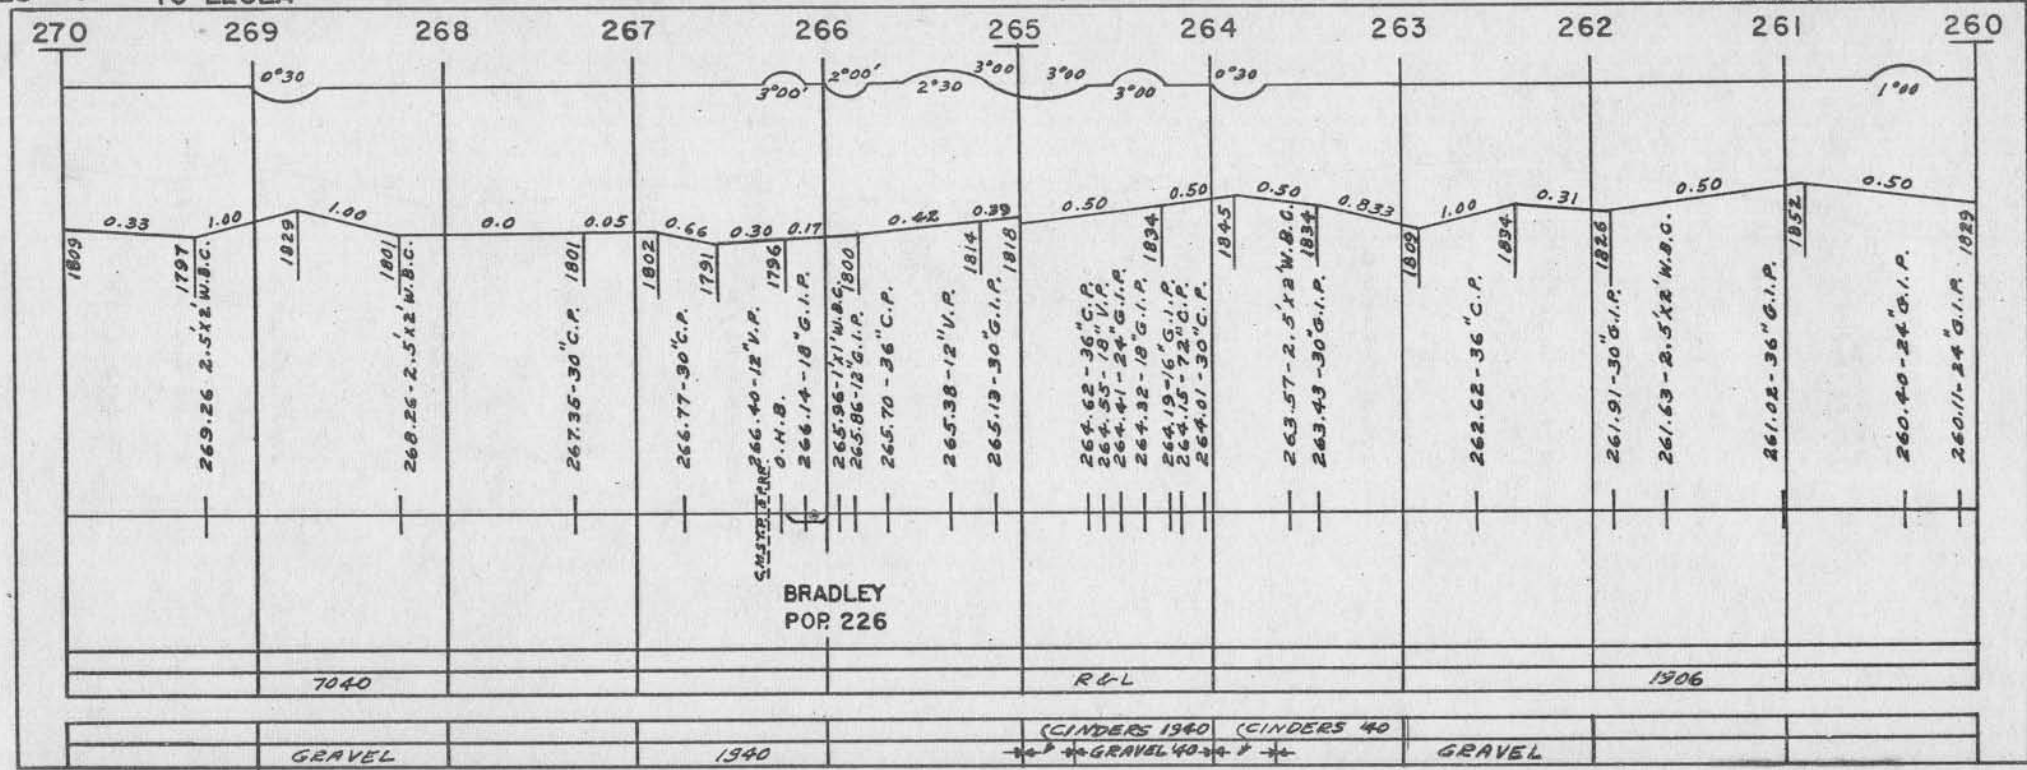 270 269 268 267 266 265 264 263 262 261 260
0°30 3°00' 2°00' 2°30 3°00 3°00 3°00 0°30 1°00
0.33 1.00 1.00 0.0 0.05 0.66 0.30 0.17 0.42 0.39 0.50 0.50 0.50 0.833 1.00 0.31 0.50 0.50
1809 1797 1829 1801 1801 1802 1791 1796 1800 1814 1818 1834 1845 1834 1809 1834 1826 1852 1829
269.26 2.5'X2' W.B.C.
268.26-2.5'X2' W.B.C.
267.35-30"C.P.
266.77-30"C.P.
266.40-12"V.P.
O.H.B.
266.14-18"G.I.P.
265.96-1'X1' W.B.C.
265.86-12"G.I.P.
265.70-36"C.P.
265.38-12"V.P.
265.13-30"G.I.P.
264.62-36"C.P.
264.55-18"V.P.
264.41-24"G.I.P.
264.32-18"G.I.P.
264.19-16"G.I.P.
264.15-72"C.P.
264.01-30"C.P.
263.57-2.5'X2' W.B.C.
263.43-30"G.I.P.
262.62-36"C.P.
261.91-30"G.I.P.
261.63-2.5'X2' W.B.C.
261.02-36"G.I.P.
260.40-24"G.I.P.
260.11-24"G.I.P.
BRADLEY
POP. 226
7040 R&L 1906
(CINDERS 1940 (CINDERS '40
GRAVEL 1940 GRAVEL '40 GRAVEL